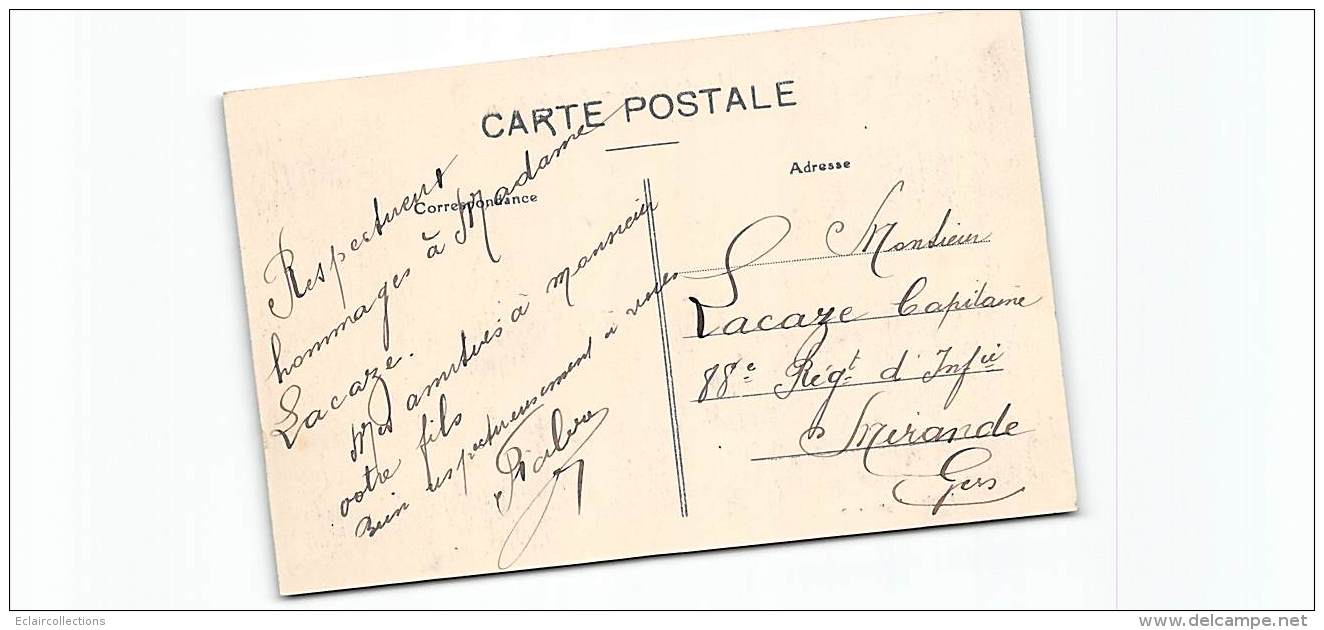 CARTE POSTALE
Correspondance
Respectueux
hommages à Madame
Lacaze.
Mes amitiés à monsieur
votre fils
Bien respectueusement à vous
Adresse
Monsieur
Lacaze Capitaine
88e Régt d'Infie
Mirande
Gers
Eclaircollections
www.delcampe.net